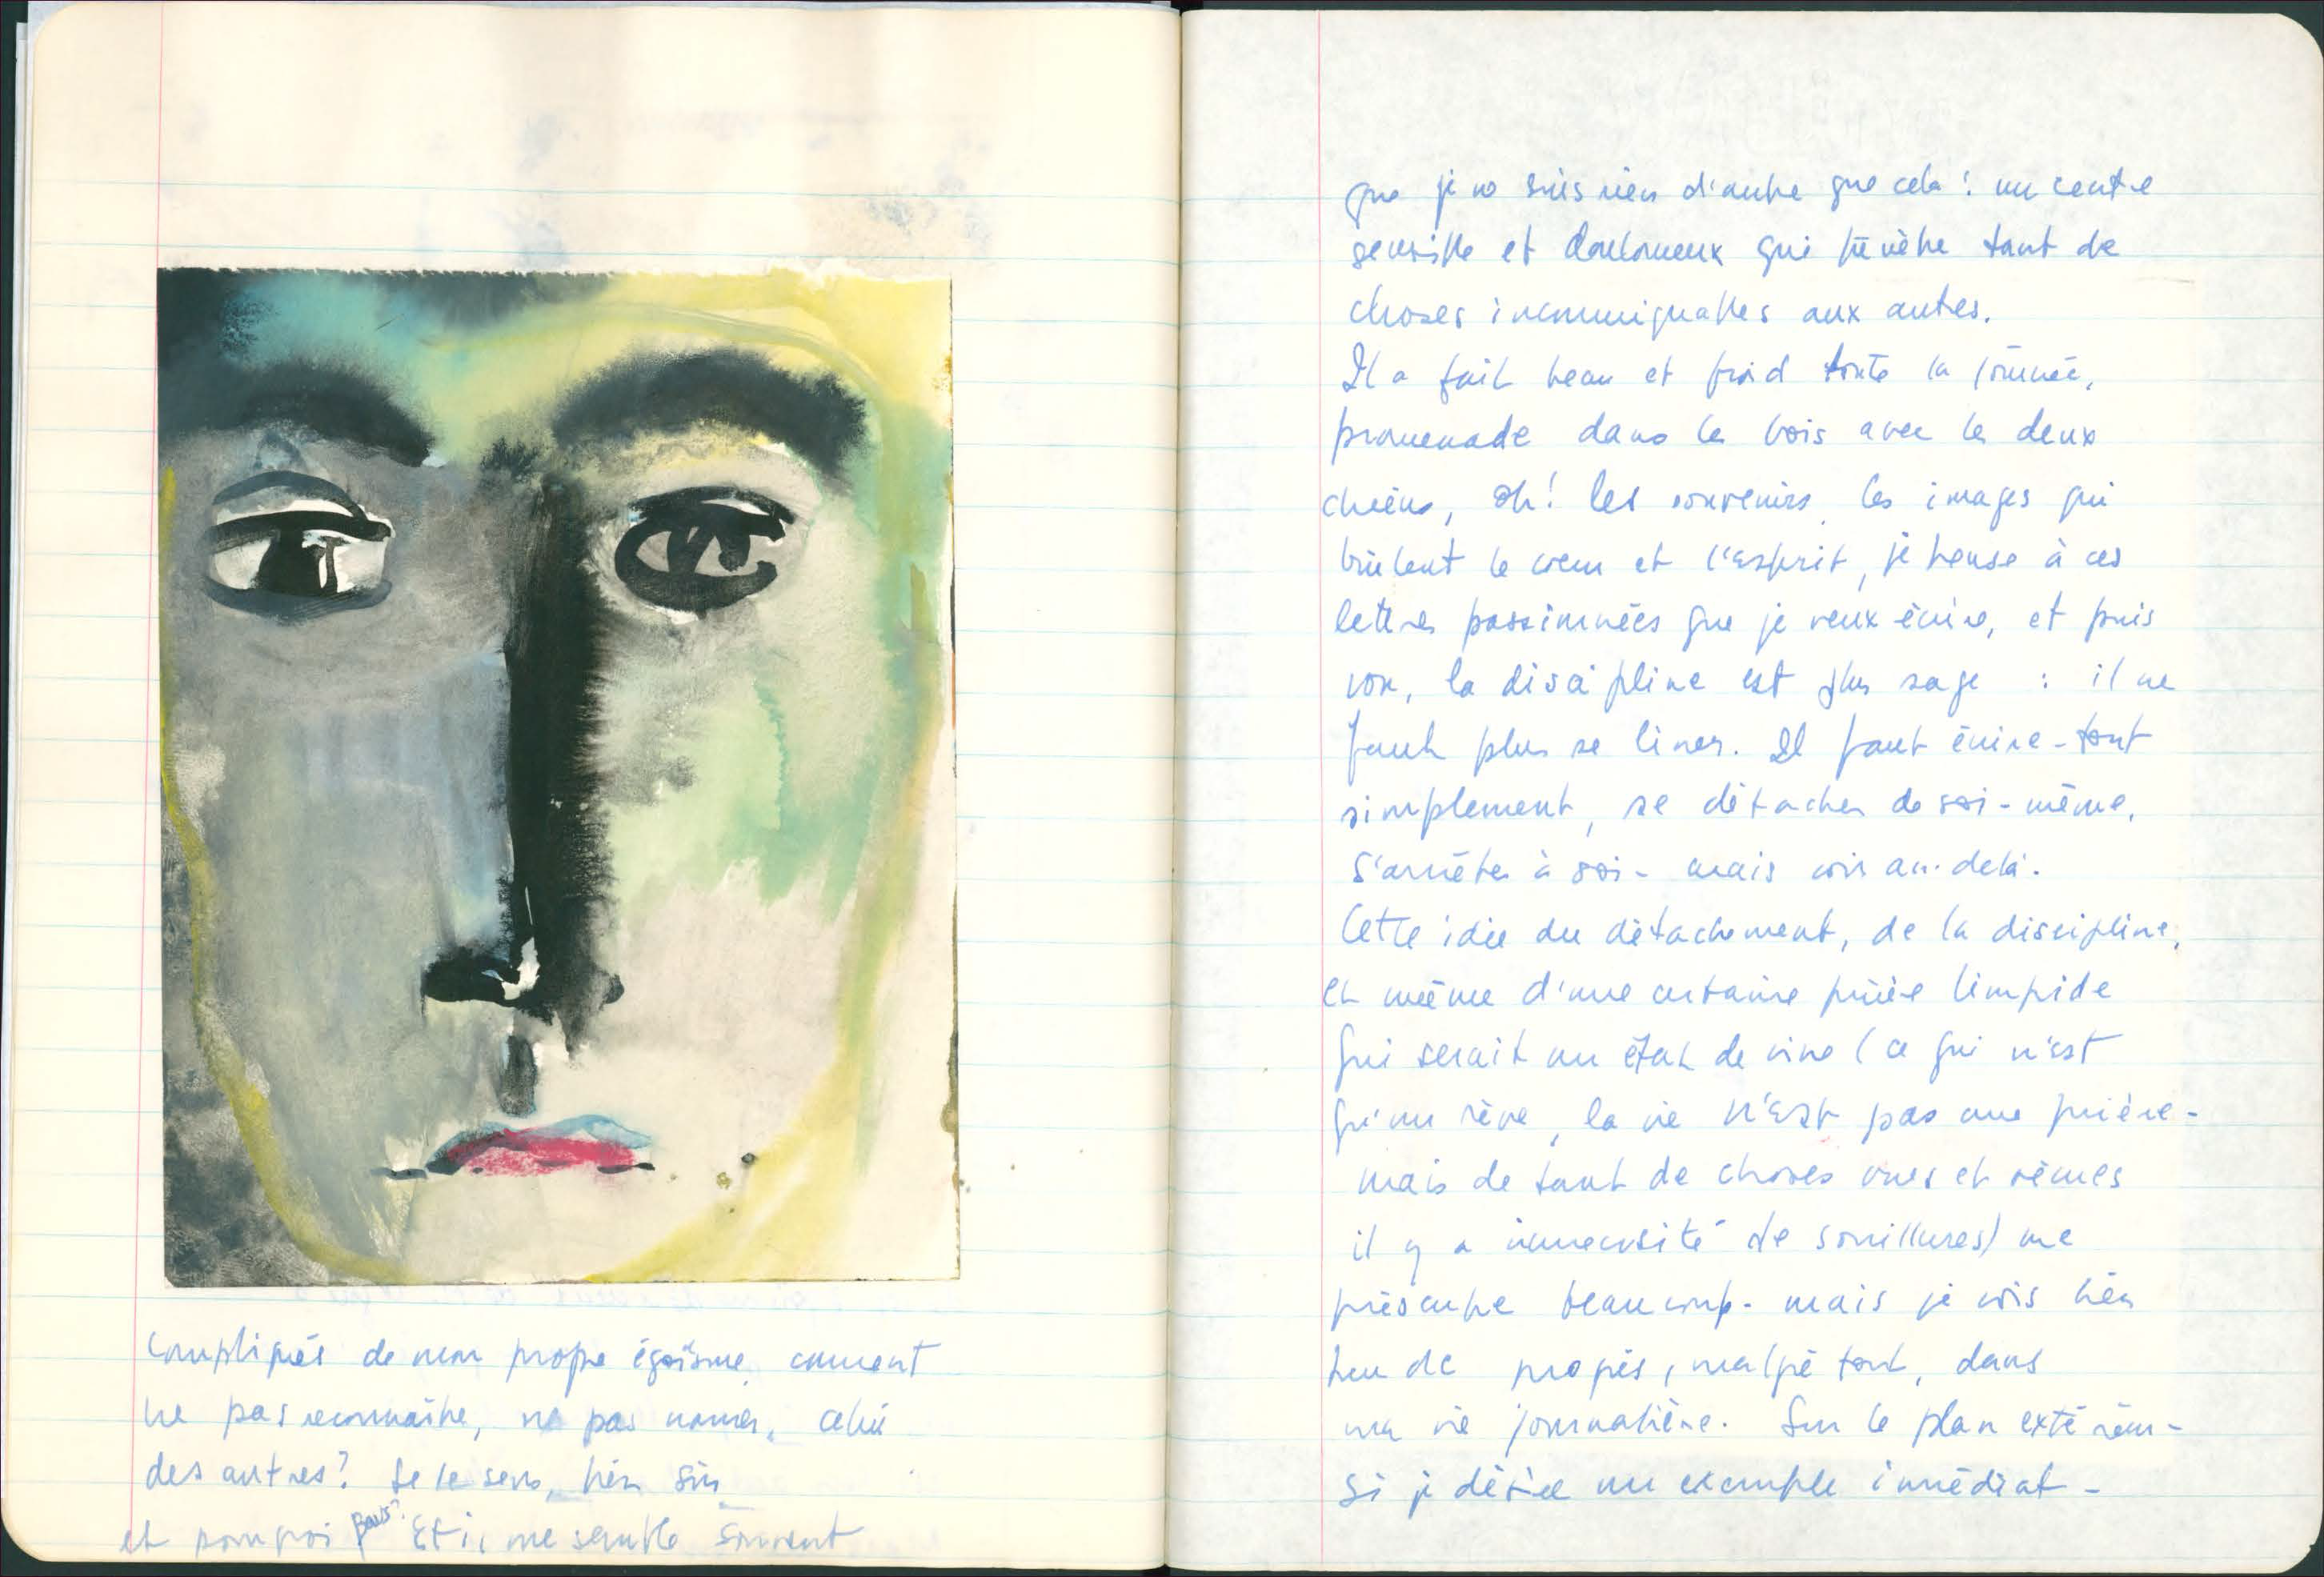 compliqués de mon propre égoïsme, comment
ne pas reconnaître, ne pas nommer, celui
des autres? Je le sens, bien sûr,
et pourquoi pas? Et il me semble souvent
que je ne suis rien d'autre que cela : un centre
sensible et douloureux qui pénètre tant de
choses incommuniquables aux autres.
Il a fait beau et froid toute la journée,
promenade dans les bois avec les deux
chiens, oh! les souvenirs, les images qui
brûlent le coeur et l'esprit, je pense à ces
lettres passionnées que je veux écrire, et puis
non, la discipline est plus sage : il ne
faut plus se livrer. Il faut écrire - tout
simplement, se détacher de soi-même,
s'arrêter à soi - mais voir au-delà.
Cette idée du détachement, de la discipline,
et même d'une certaine prière limpide
qui serait un état de vivre (ce qui n'est
qu'un rêve, la vie n'est pas une prière -
mais de tant de choses vues et
il y a de souillures) me
préoccupe beaucoup - mais je vois bien
peu de progrès, malgré tout, dans
ma vie journalière. Sur le plan extérieur -
si je désire un exemple immédiat -